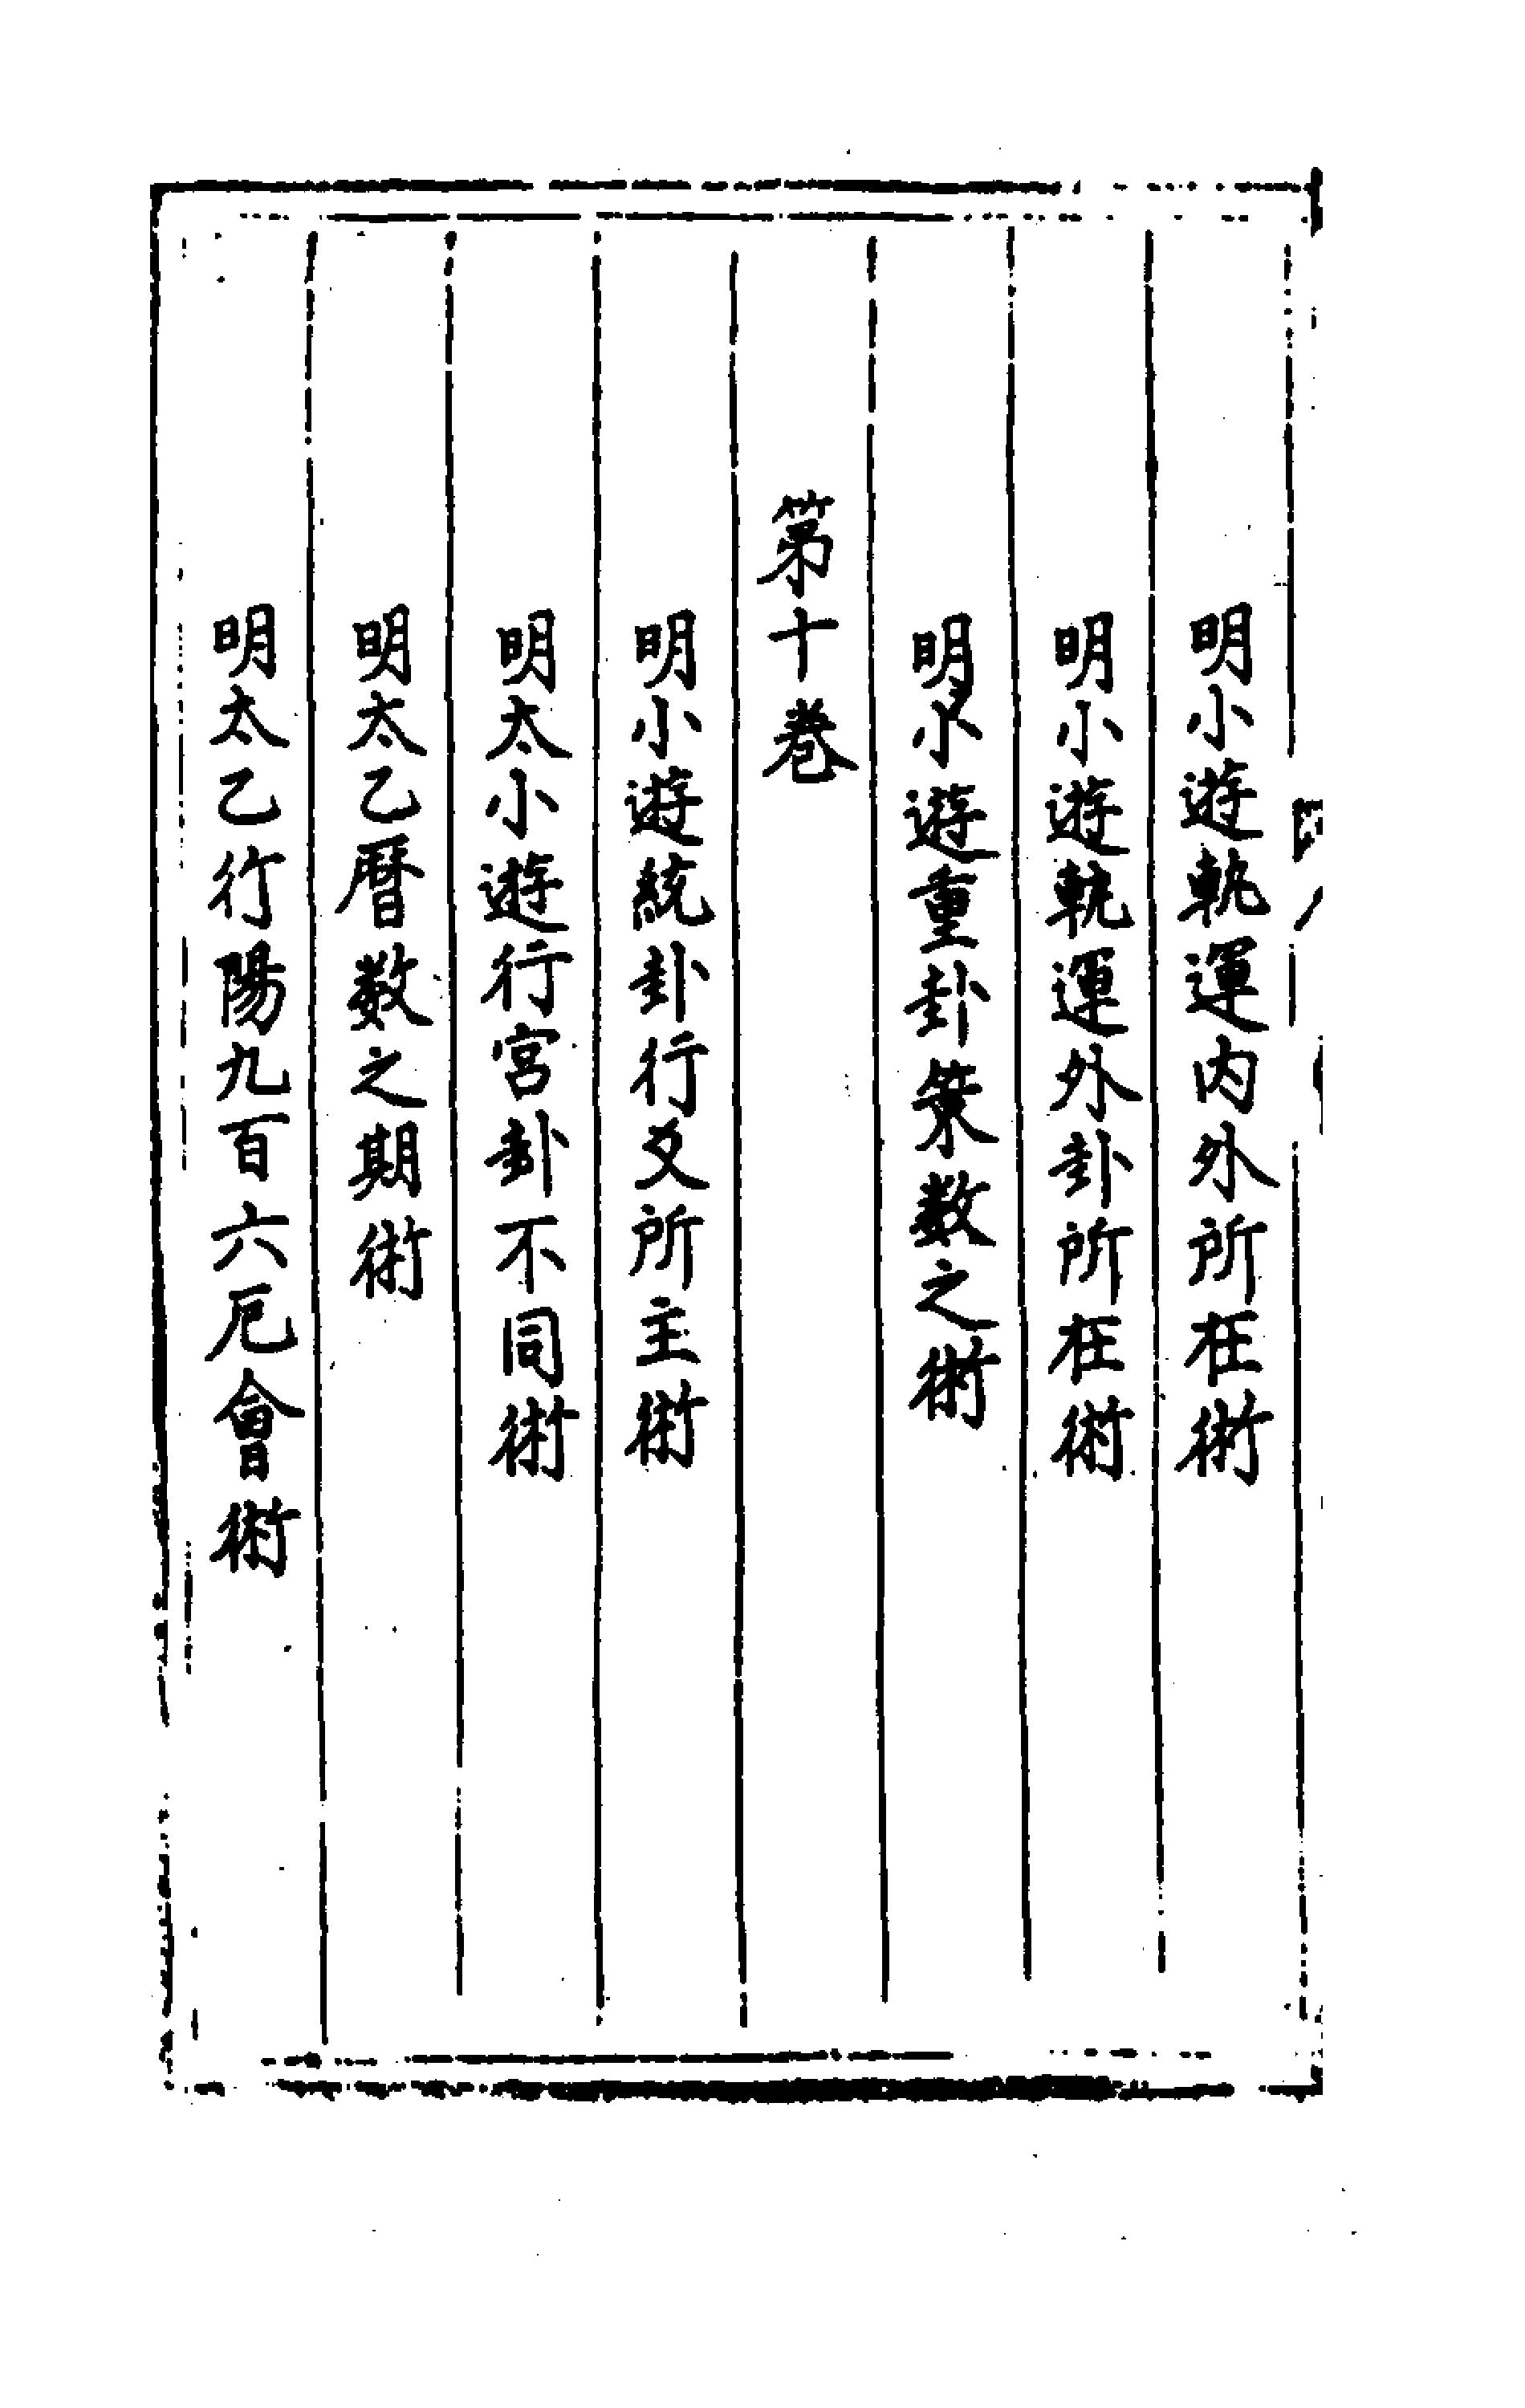 明小遊軌運内外所在術
明小遊軌運外卦所在術
明小遊重卦策数之術
第十巻
明小遊統卦行爻所主術
明太小遊行宮卦不同術
明太乙暦数之期術
明太乙行陽九百六厄會術